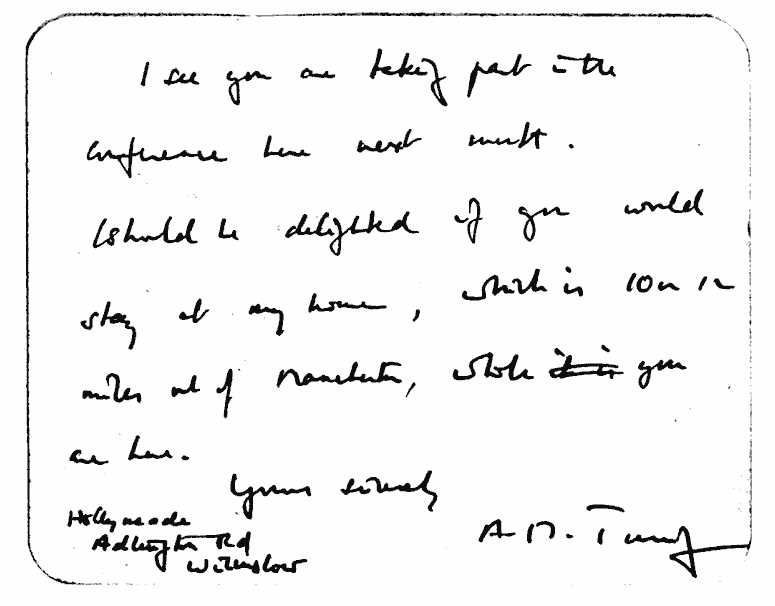 I see you are taking part in the
conference here next month.
I should be delighted if you would
stay at my home, which is 10 or 12
miles out of Manchester, while it is you
are here.
Yours sincerely
A. M. Turing
Hollymeade
Adlington Rd
Wilmslow